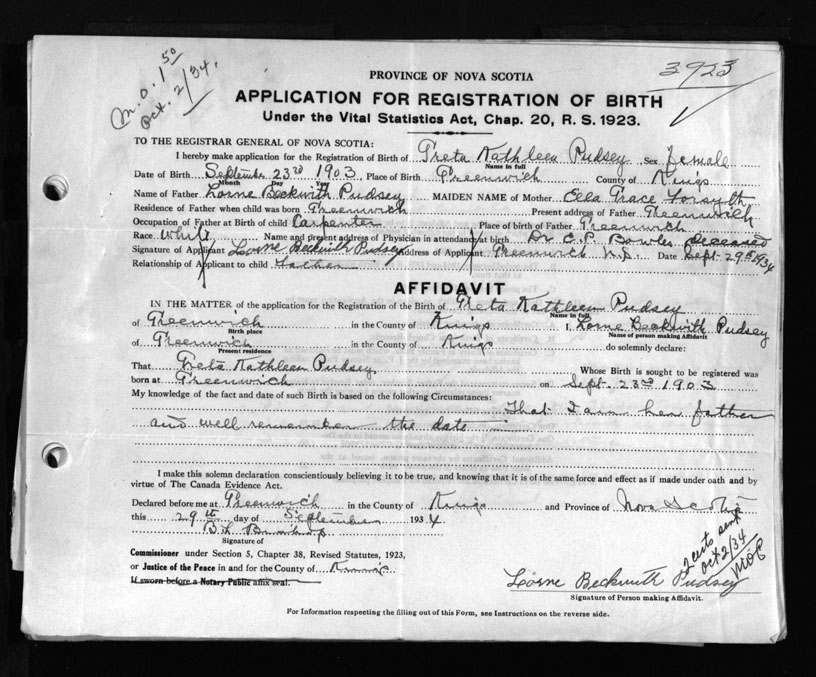 M.O. 1.50
Oct. 2/34.
3923
PROVINCE OF NOVA SCOTIA
APPLICATION FOR REGISTRATION OF BIRTH
Under the Vital Statistics Act, Chap. 20, R. S. 1923.
TO THE REGISTRAR GENERAL OF NOVA SCOTIA:
I hereby make application for the Registration of Birth of Greta Kathleen Pudsey Sex female
Name in full
Date of Birth September 23rd 1903 Place of Birth Greenwich County of Kings
Month Day
Name of Father Lorne Beckwith Pudsey MAIDEN NAME of Mother Ella Grace Forsyth
Residence of Father when child was born Greenwich Present address of Father Greenwich
Occupation of Father at Birth of child Carpenter Place of birth of Father Greenwich
Race White Name and present address of Physician in attendance at birth Dr C. P. Bowles Deceased
Signature of Applicant Lorne Beckwith Pudsey Address of Applicant Greenwich N.S. Date Sept. 29th 1934
Relationship of Applicant to child father
AFFIDAVIT
IN THE MATTER of the application for the Registration of the Birth of Greta Kathleen Pudsey
Name in full
of Greenwich in the County of Kings I, Lorne Beckwith Pudsey
Birth place Name of person making Affidavit
of Greenwich in the County of Kings do solemnly declare:
Present residence
That Greta Kathleen Pudsey Whose Birth is sought to be registered was
born at Greenwich on Sept. 23rd 1903
My knowledge of the fact and date of such Birth is based on the following Circumstances:
That I am her father
and well remember the date
I make this solemn declaration conscientiously believing it to be true, and knowing that it is of the same force and effect as if made under oath and by
virtue of The Canada Evidence Act.
Declared before me at Greenwich in the County of Kings and Province of Nova Scotia
this 29th day of September 1934
B. L. Bishop
Signature of
Commissioner under Section 5, Chapter 38, Revised Statutes, 1923,
or Justice of the Peace in and for the County of Kings
If sworn before a Notary Public affix seal.
2 certs sent
Oct 2/34
Lorne Beckwith Pudsey
Signature of Person making Affidavit.
For Information respecting the filling out of this Form, see Instructions on the reverse side.